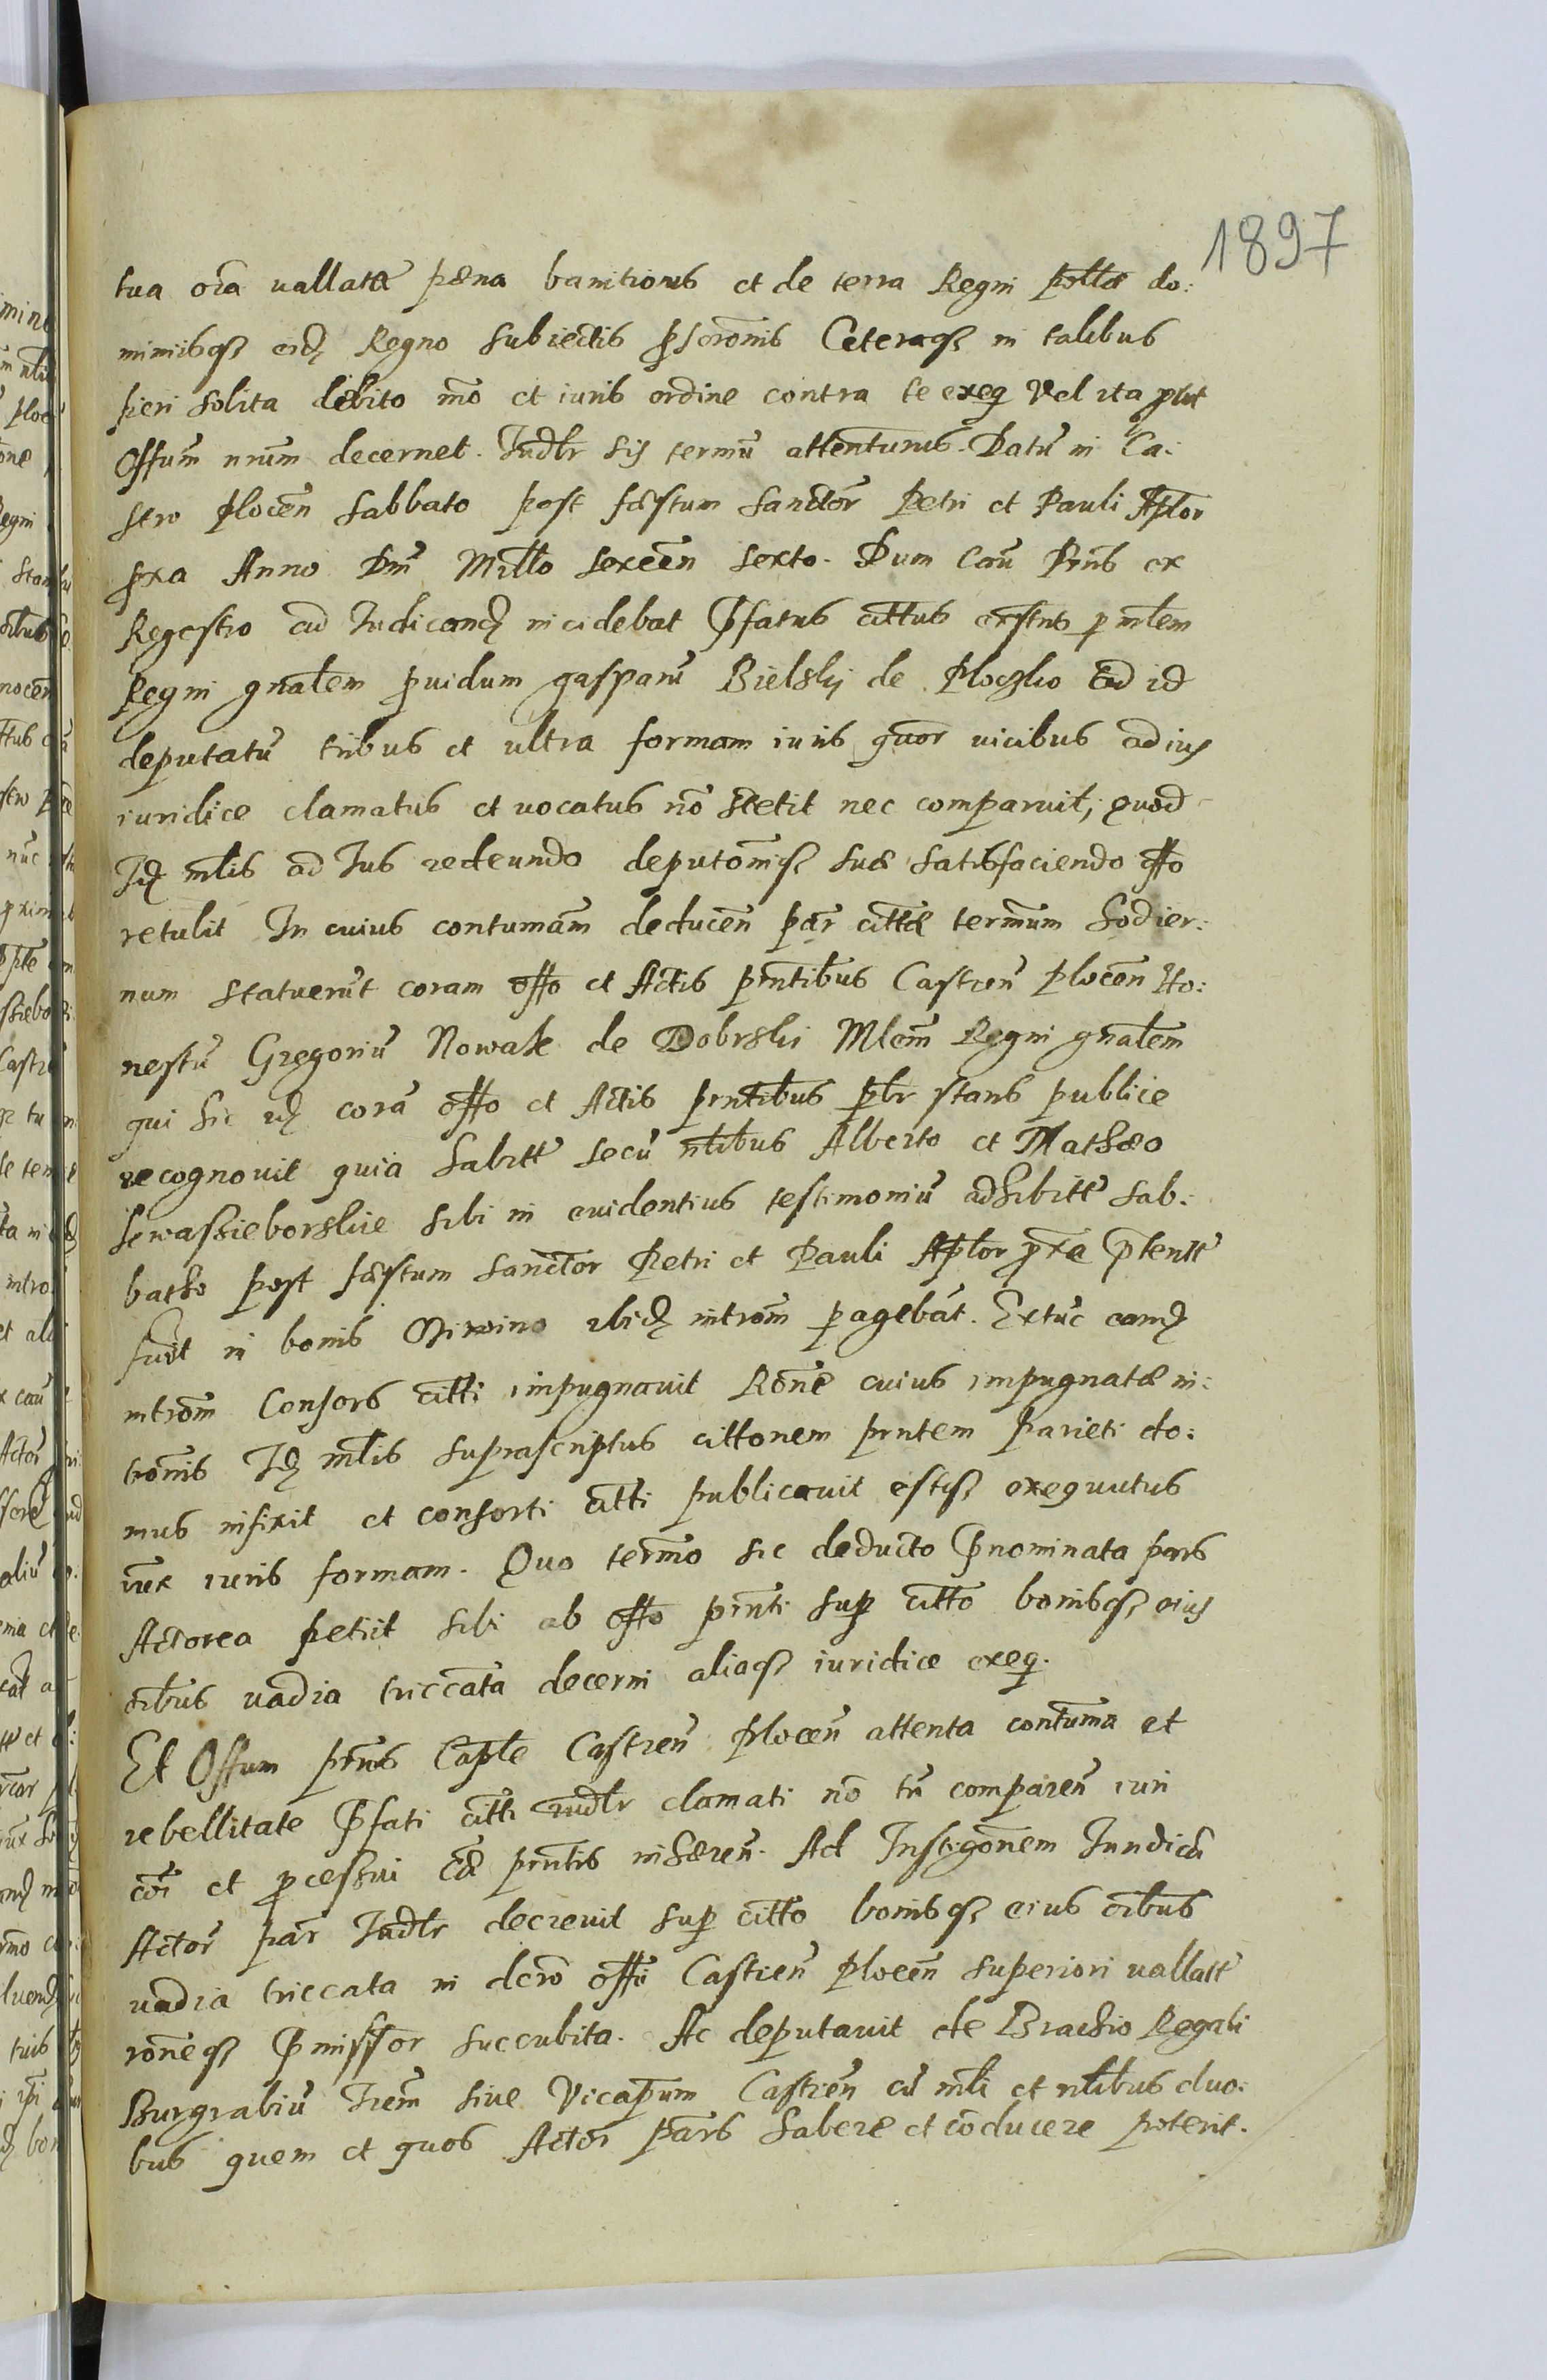 1897
tua oia vallata pæna banitionis et de terra Regni pollæ do:
miniisq3 eidem Regno subiectis pscronis Ceteraq3 in talibus
fieri solita debito mo et iuris ordine contra te exeq Vel ita prt
Offum nrum decernet. Judlr sis termu attenturus. Datu in Ca:
stro Plocen sabbato post fæstum Sanctor Petri et Pauli Aplor
pxa Anno Dni Millo sexcen sexto. Dum Cau Prns ex
Regestro ad Iudicand incidebat Pfatus cittus p mlem
Regni gnalem puidum gasparu Bielskj de Ploczko Ad id
deputatu tribus et ultra formam iuris quor vicibus ad ius
iuridice clamatus et vocatus no stetit nec comparuit, quod
Id mlis ad Jus redeundo deputomiq3 suæ satisfaciendo offo
retulit In cuius contumam deducen par cittæ termum hodier:
num statuerut coram offo et Actis prntibus Castren Plocen Ho:
nestu Gregoriu Nowak de Dobrski Mlem Regni gnalem
qui hic id cora offo et Actis prntibus plr stans publice
recognovit quia habitt secu nlibus Alberto et Mathæo
Krwassieborskie sibi in evidentius testimoniu adhibitt sab:
batho post fæstum Sanctor Petri et Pauli Aplor pxa ptentt
fuit in bonis Miwino ibid introm pagebat. Extuc eamd
introm Consors citti impugnavit Rone cuius impugnatæ in:
tromis Id mlis suprascriptus cittonem prntem parieti do:
mus infixit et consorti citti publicavit estq3 exequutus
iux iuris formam. Quo termo sic deducto Pnominata pars
Actorea petiit sibi ab offo prnti sup citto bonisq3 eius
oibus vadia triccata decerni aliaq3 iuridice exeq.
Et Offum prns Caple Castren Plocen attenta contuma et
rebellitate Pfati citti iudlr clamati no tn comparen iuri
coi et pcessui Cæ prntis inhæren. Ad Instigonem Iuridica
Actor par Iudlr decrevit sup citto bonisq3 eius oibus
vadia triccata in dcro offi Castren Plocen superiori vallatt
roneq3 Pmissor succubita. Ac deputavit de Brachio Regali
Burgrabiu Trem sive Vicapum Castren cu mli et nlibus duo:
bus quem et quos Actor pars habere et coducere poterit.